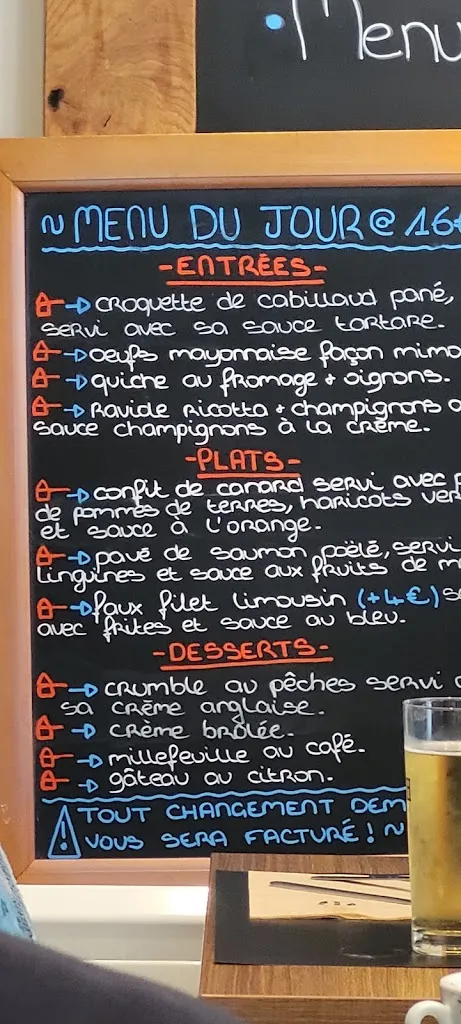 Menu
~ MENU DU JOUR @ 16€
- ENTRÉES -
croquette de cabillaud pané,
servi avec sa sauce tartare.
oeufs mayonnaise façon mimo
quiche au fromage + oignons.
Raviole Ricotta + champignons
sauce champignons à la crème.
- PLATS -
confit de canard servi avec
de pommes de terres, haricots ver
et sauce à l'orange.
pavé de saumon poëlé, servi
linguines et sauce aux fruits de m
faux filet limousin (+4€) s
avec frites et sauce au bleu.
- DESSERTS -
crumble au pêches servi
sa crème anglaise.
crème brûlée.
millefeuille au café.
gâteau au citron.
! TOUT CHANGEMENT DEM
VOUS SERA FACTURÉ ! ~